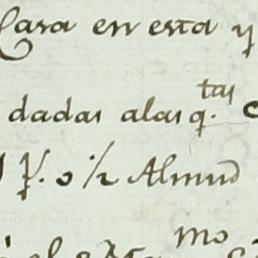 Casa en esta y
dadas alas q.tas
o ½ Almud
mo